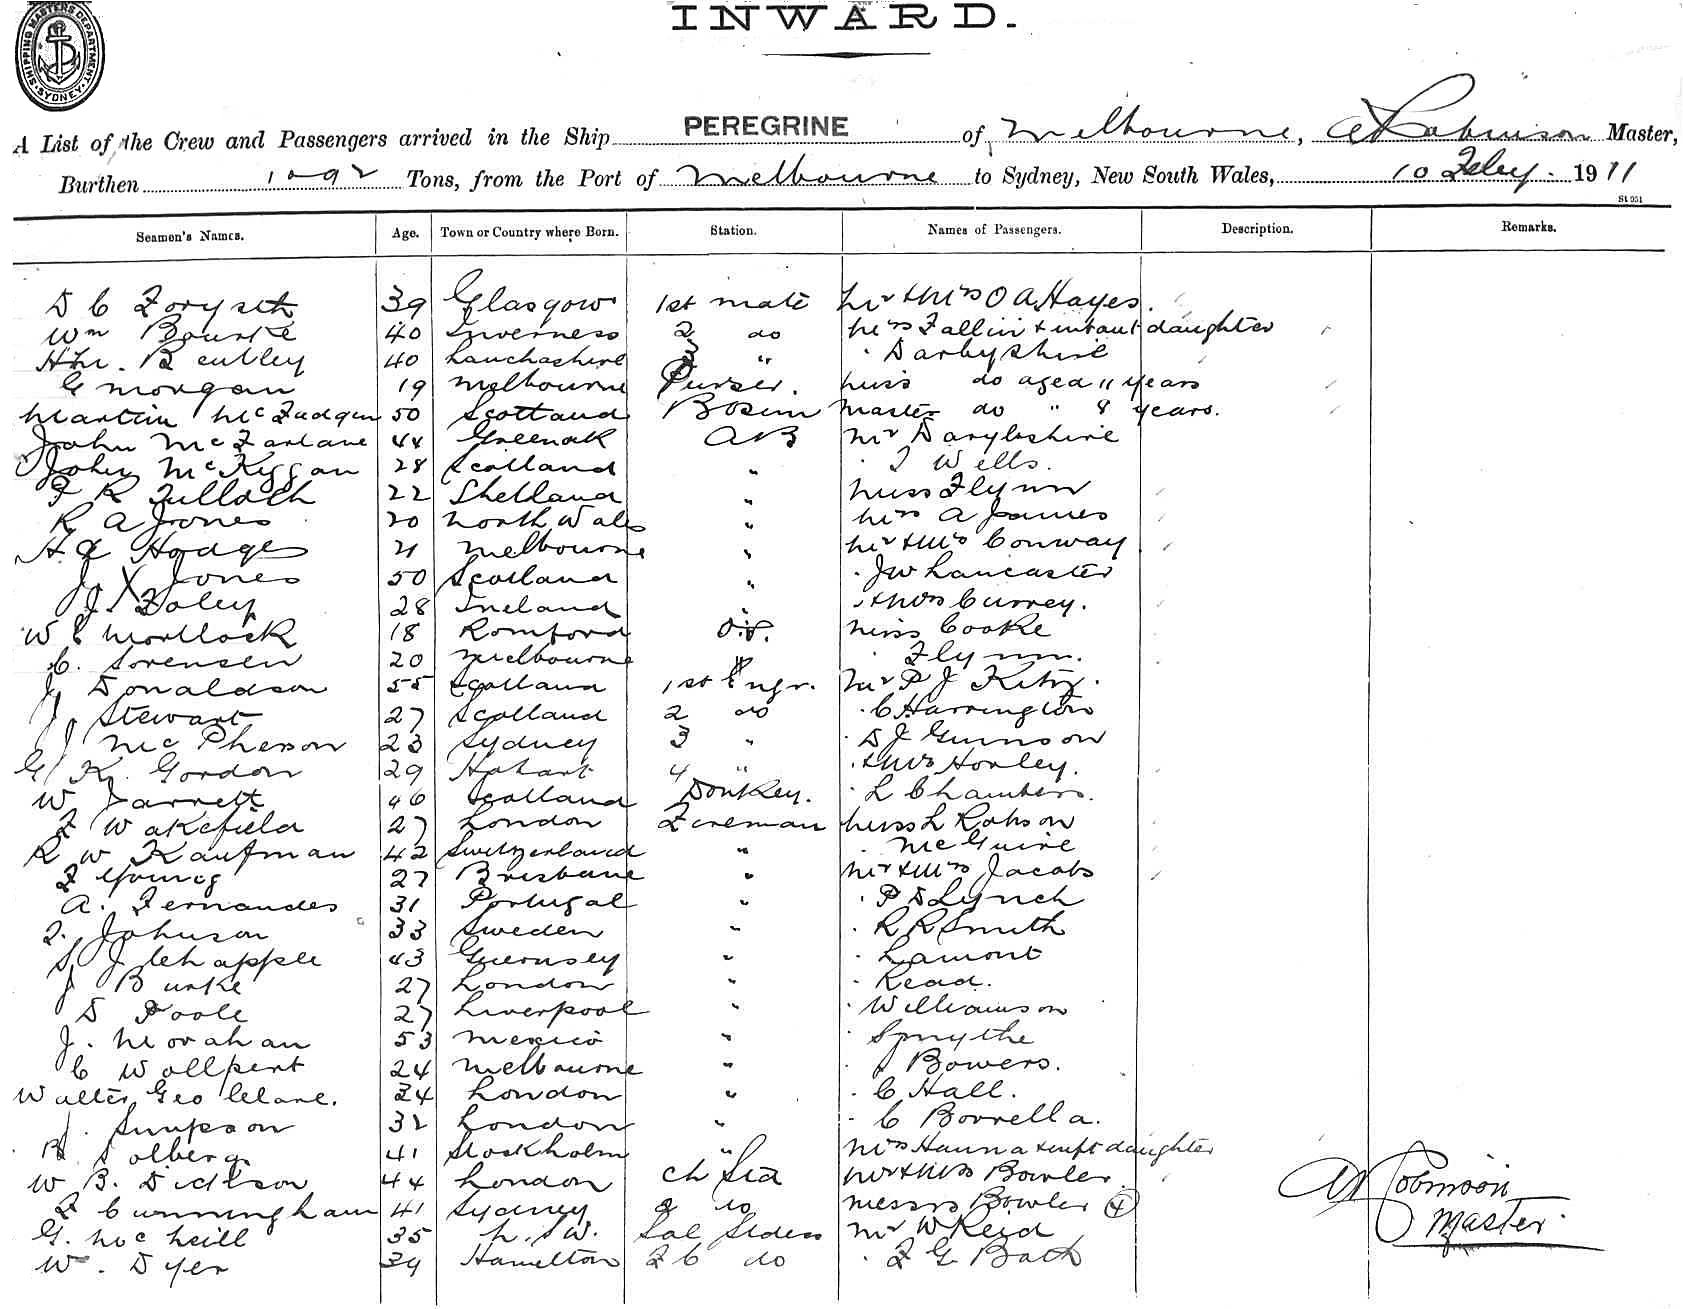 SHIPPING MASTERS DEPARTMENT
SYDNEY
INWARD.
A List of the Crew and Passengers arrived in the Ship PEREGRINE of Melbourne, A Robinson Master,
Burthen 1092 Tons, from the Port of Melbourne to Sydney, New South Wales, 10 Feby. 1911
St 051
Seamen's Names. Age. Town or Country where Born. Station. Names of Passengers. Description. Remarks.
D C Forysth 39 Glasgow 1st mate Mr & Mrs O A Hayes.
Wm Bourke 40 Inverness 2 do Mrs Fallin & infant daughter
Hy. Bentley 40 Lanchashire 3 " " Darbyshire
G Morgan 19 Melbourne Purser. Miss do aged 11 years
Martin McFadgen 50 Scotland Bosun Master do " 8 years.
John McFarlane 44 Greenak AB Mr Darybshire
John McKiggan 28 Scotland " " Wells.
F R Tulloch 22 Shetland " Miss Flynn
R A Jones 20 North Wales " Mrs A James
H E Hodges 21 Melbourne " Mr & Mrs Conway
J Jones 50 Scotland " " J W Lancaster
J Foley 28 Ireland " " & Mrs Currey.
W E Mortlock 18 Romford O.S. Miss Cooke
C. Sorensen 20 Melbourne " Flynn.
J Donaldson 55 Scotland 1st Engr. Mr P J Kitz.
J Stewart 27 Scotland 2 do " C Harrington
J McPherson 23 Sydney 3 " " D J Gunnson
G K. Gordon 29 Hobart 4 " " & Mrs Horley.
W Jarrett 46 Scotland Donkey. " L Chambers.
F Wakefield 27 London Fireman Miss L Robson
R W Kaufman 42 Switzerland " " McGuire
F Young 27 Brisbane " Mr & Mrs Jacobs
A. Fernandes 31 Portugal " " P D Lynch
J. Johnson 33 Sweden " " R R Smith
S J Chapple 43 Guernsey " " Lamont
J Burke 27 London " " Read.
D Poole 27 Liverpool " " Williamson
J. Morahan 53 Mexico " " Smythe
C Wollpert 24 Melbourne " " J Bowers.
Walter Geo Clare. 34 London " " C Hall.
J. Simpson 32 London " " C Borrella.
B Solberg 41 Stockholm " Mrs Hanna & inft daughter
W B. Dickson 44 London Ch Std Mr & Mrs Bowler.
F Cunningham 41 Sydney 2 do Messrs Bowler (4)
G. McNeill 35 N. S W. Sal Stdess Mr W Reid
W. Dyer 39 Hamilton F C do " F G Bath
A Robinson
Master